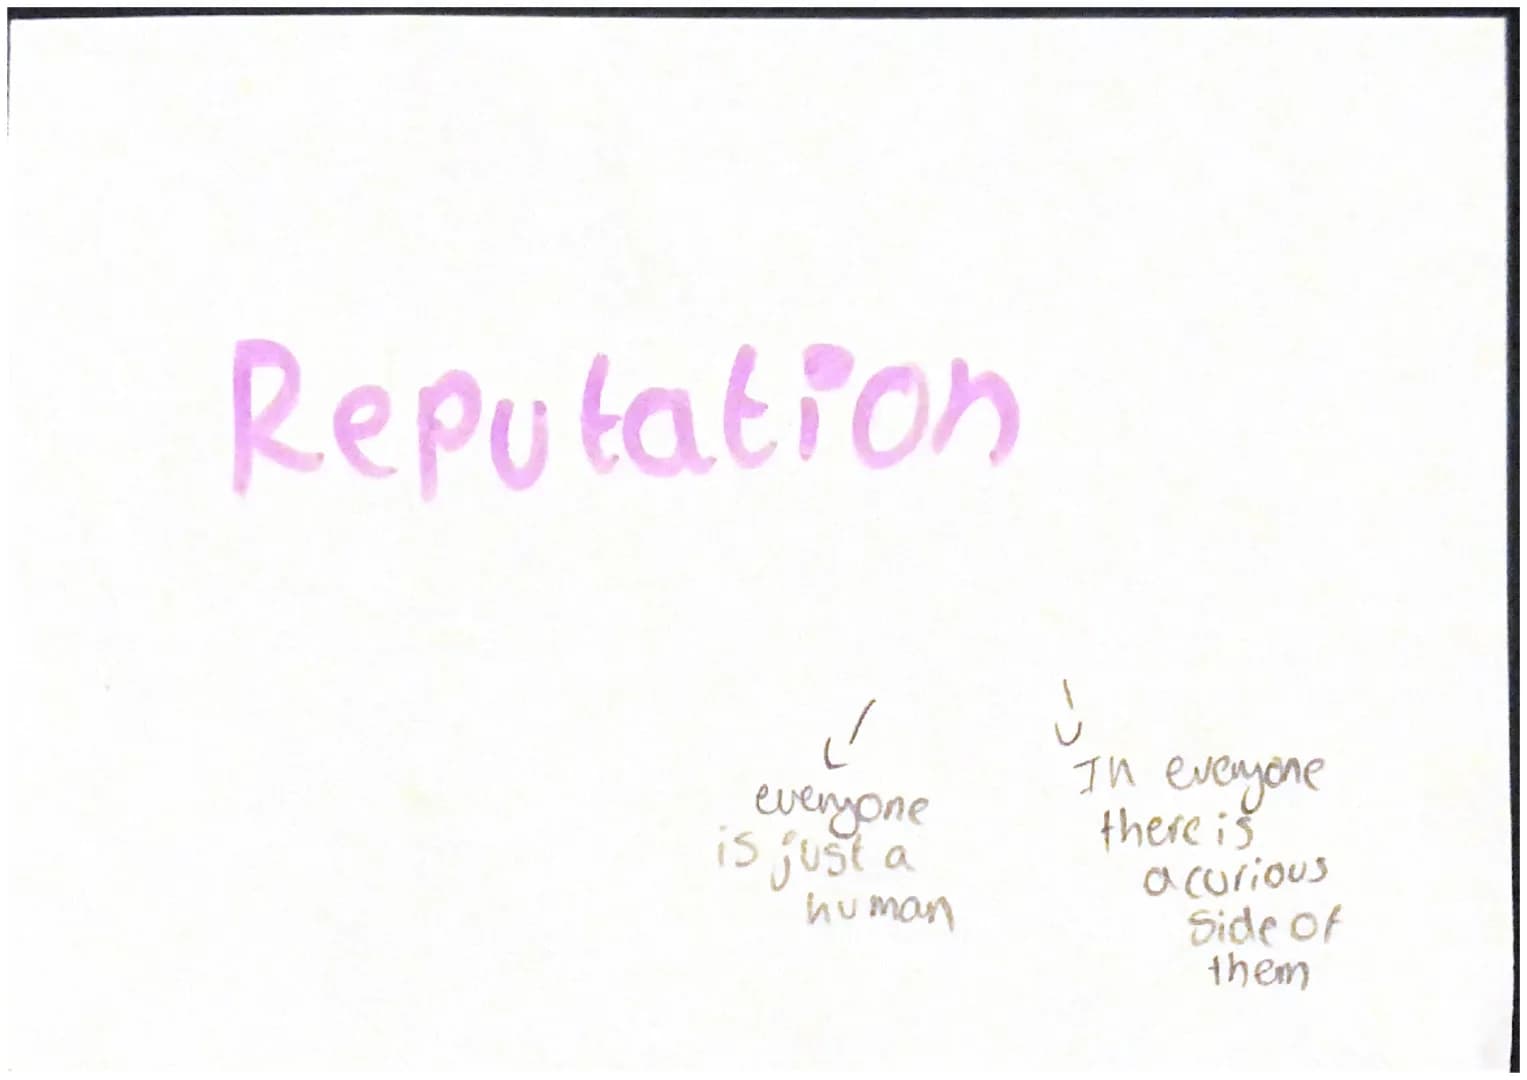 Reputation
everyone
is just a
human
In everyone
there is
a curious
side of
them